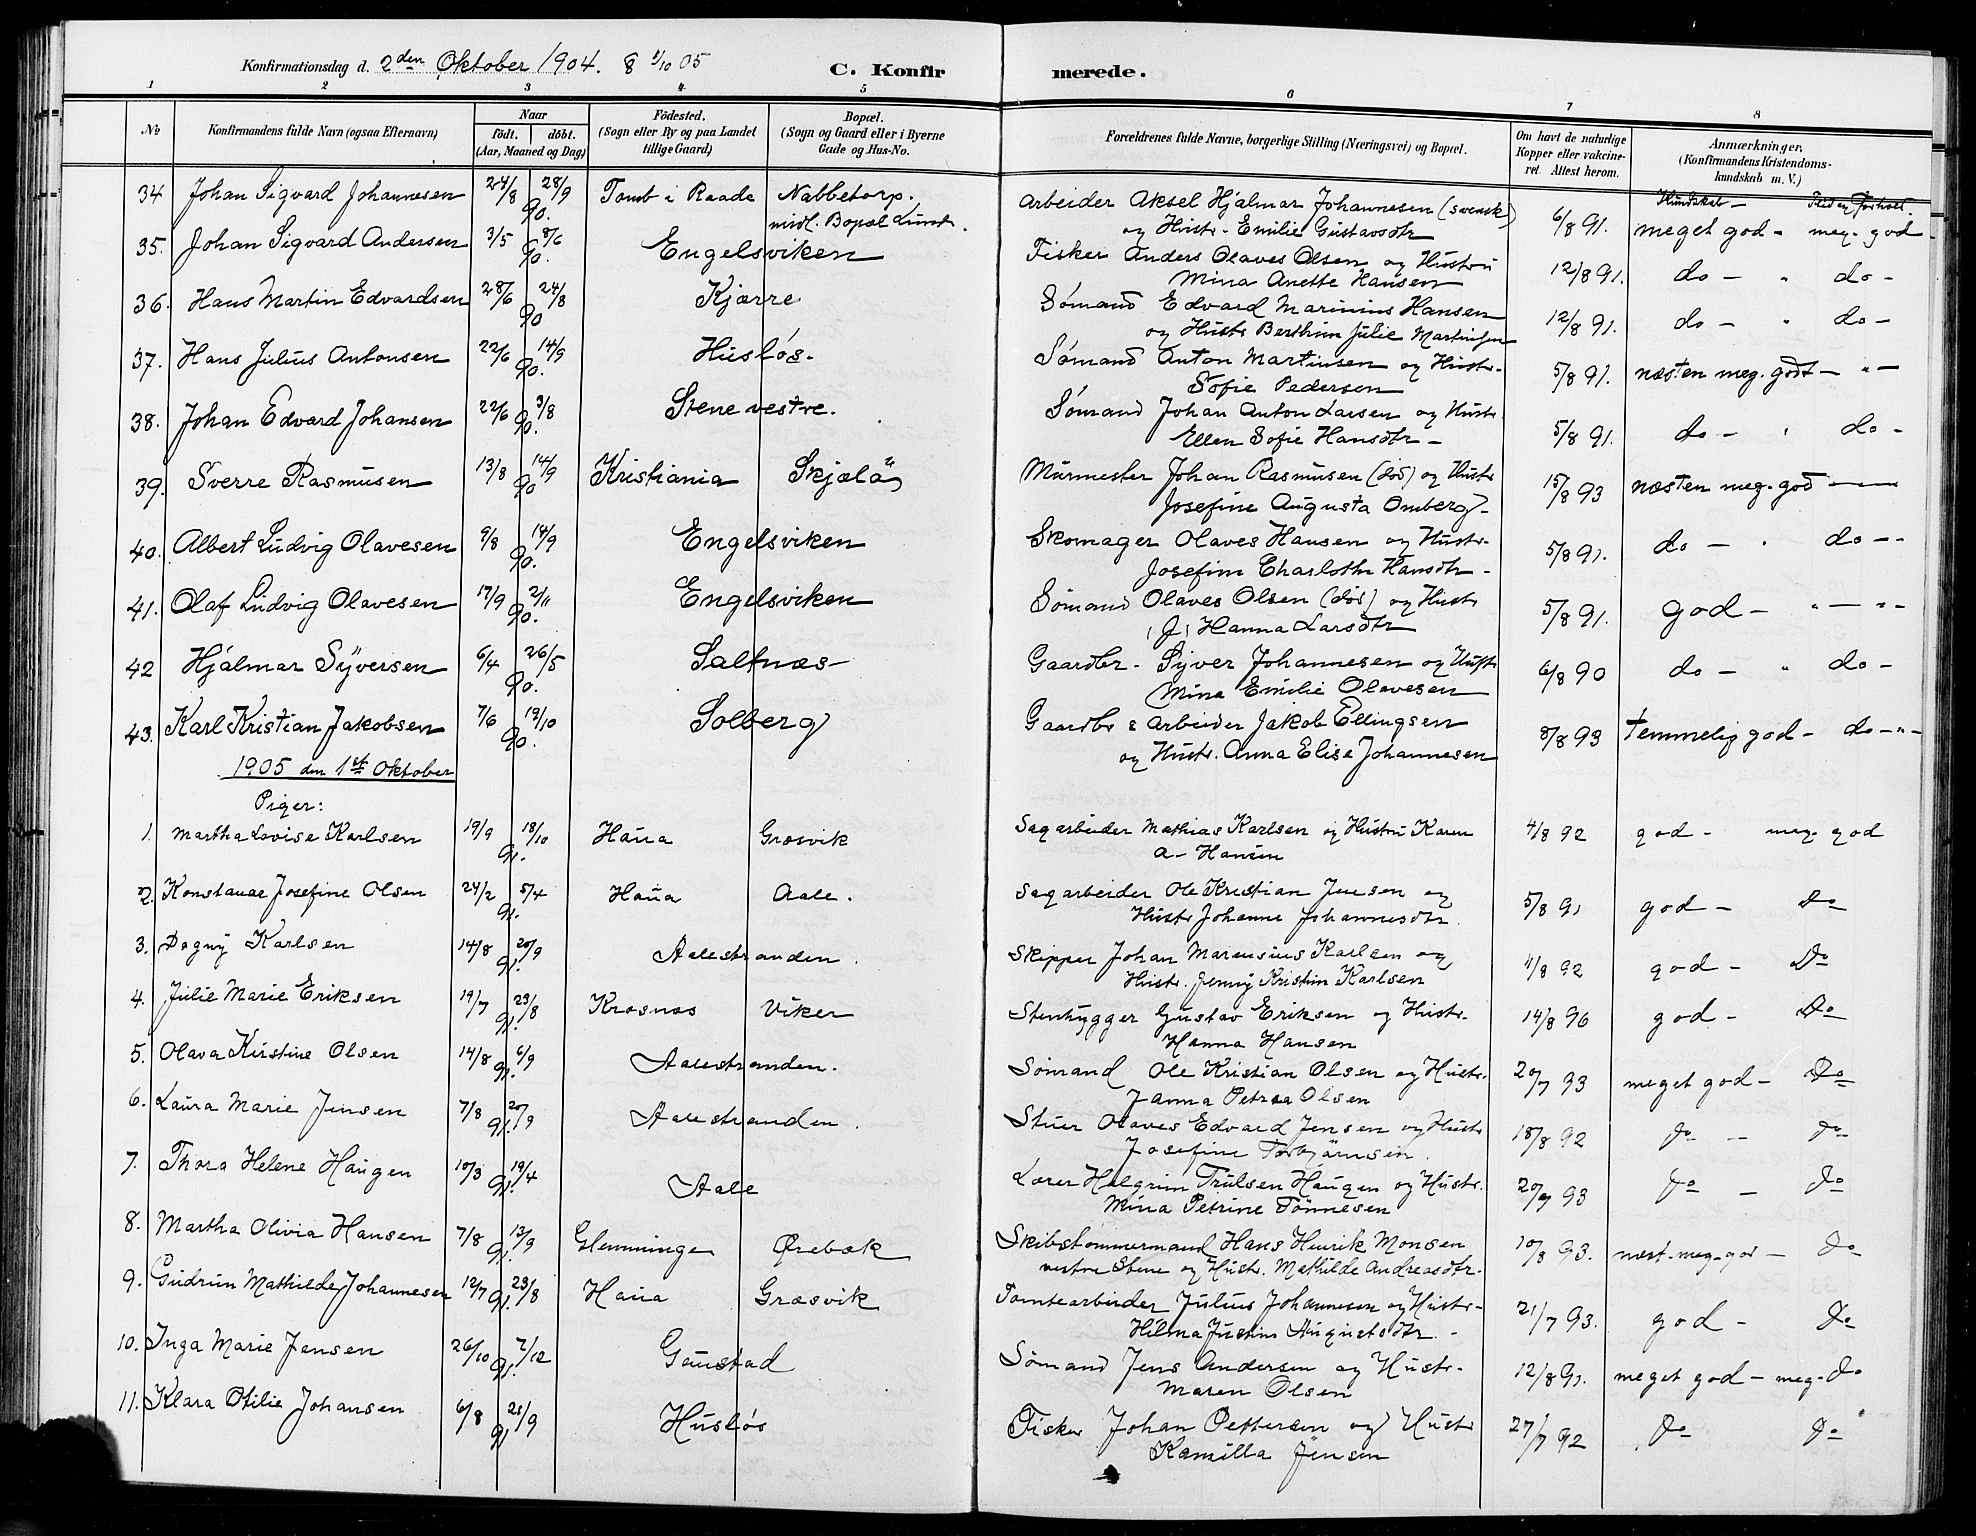 Konfirmationsdag d. 2den Oktober 1904. & 1/10 05
C. Konfir merede.
1 2 3 4 5 6 7 8
No
Konfirmandens fulde Navn (ogsaa Efternavn)
Naar
født. døbt.
(Aar, Maaned og Dag)
Fødested.
(Sogn eller By og paa Landet
tillige Gaard)
Bopæl.
(Sogn og Gaard eller i Byerne
Gade og Hus-No.
Forældrenes fulde Navne, borgerlige Stilling (Næringsvei) og Bopæl.
Om havt de naturlige
Kopper eller vakcine-
ret. Attest herom.
Anmærkninger.
(Konfirmandens Kristendoms-
kundskab m. V.)
Kundskab - Flid og Forhold.
34 Johan Sigvard Johannesen 24/8 28/9 90. Tomb i Raade Nabbetorp. midl. Bopæl Lund. Arbeider Aksel Hjalmar Johannesen (svensk) 6/8 91. meget god - meg. god -
og Hustr. Emilie Gustavsdtr
35. Johan Sigvard Andersen 3/5 8/6 90. Engelsviken Fisker Anders Olaves Olsen og Hustru 12/8 91. do - " do -
Mina Anette Hansen
36. Hans Martin Edvardsen 28/6 24/8 90 Kjærre Sømand Edvard Marinius Hansen 12/8 91. do - " do -
og Hustr Berthine Julie Martinsen
37. Hans Julius Antonsen 22/6 14/9 90. Husløs. Sømand Anton Martinsen og Hustr. 5/8 91. næsten meg. godt - " -
Sofie Pedersen
38. Johan Edvard Johansen 22/6 3/8 90. Stene vestre. Sømand Johan Anton Larsen og Hustr 5/8 91. do - " do -
Ellen Sofie Hansdtr -
39. Sverre Rasmusen 13/8 14/9 90 Kristiania Skjælå Murmester Johan Rasmusen (død) og Hustr 15/8 93 næsten meg. god
Josefine Augusta Omberg -
40. Albert Ludvig Olavesen 9/8 14/9 90. Engelsviken Skomager Olaves Hansen og Hustr. 5/8 91. do - " do -
Josefine Charlothe Hansdtr -
41. Olaf Ludvig Olavesen 17/9 2/11 90. Engelsviken Sømand Olaves Olsen (død) og Hustr 5/8 91. god - " - "
(J) Hanna Larsdtr
42 Hjalmar Syversen 6/4 26/5 90. Saltnæs - Gaardbr. Syver Johannesen og Hustr 6/8 90 do - " do -
Mina Emilie Olavesen
43. Karl Kristian Jakobsen 7/6 19/10 90. Solberg Gaardbr & Arbeider Jakob Ellingsen 8/8 93 temmelig god - do - " -
og Hustr. Anna Elise Johannesen
1905 den 1ste Oktober
Piger:
1. Martha Lovise Karlsen 19/9 18/10 91. Haua Græsvik Sagarbeider Mathias Karlsen og Hustru Karen 4/8 92 god - meg. god
A- Hansen
2. Konstanse Josefine Olsen 24/2 5/4 91. Haua Aale. Sagarbeider Ole Kristian Jensen og 5/8 91 god - Do
Hustr Johanne Johannesdtr.
3. Dagny Karlsen 14/8 20/9 91. Aalestranden. Skipper Johan Marensius Karlsen og 4/8 92 god - Do
Hustr. Jenny Kristine Karlsen
4. Julie Marie Eriksen 19/7 23/8 91. Krosnæs Viker Stenhygger Gustav Eriksen og Hustr. 14/8 96 god - Do
Hanna Hansen
5. Olava Kirstine Olsen 14/8 6/9 91. Aalestranden. Sømand Ole Kristian Olsen og Hustr. 20/7 93 meget god - Do
Janna Petrea Olsen
6. Laura Marie Jensen 7/8 20/9 91. Aalestranden. Stuer Olaves Edvard Jensen og Hustr 18/8 92 Do - Do
Josefine Torbjørnsen.
7. Thora Helene Haugen 10/3 19/4 91. Aale Lærer Halgrim Trulsen Haugen og Hustr. 20/7 93 Do - Do
Mina Petrine Tönnesen
8. Martha Olivia Hansen 7/8 13/9 91. Glemminge Ørebæk Skibstømmermand Hans Henrik Monsen 10/8 93. næst. meg. god - Do
vestre Stene og Hustr. Mathilde Andreasdtr.
9. Gudrun Mathilde Johannesen 12/7 23/8 91. Haua Græsvik Tomtearbeider Julius Johannesen og Hustr - 21/7 93. god - Do
Hilma Justine Augustsdtr. -
10. Inga Marie Jensen 26/10 7/12 91. Gaustad Sømand Jens Andersen og Hustr. 12/8 91. meget god - meg. Do
Maren Olsen
11. Klara Otilie Johansen 6/8 21/9 91. Husløs Fisker Johan Pettersen og Hustr 27/7 92 Do Do
Kamilla Jensen